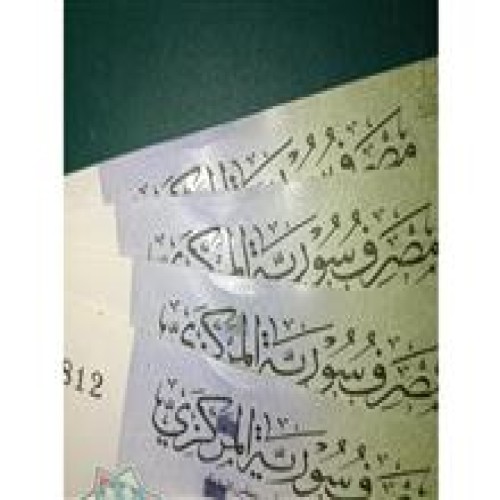 مصرف سورية المركزي
مصرف سورية المركزي
مصرف سورية المركزي
312
مصرف سورية المركزي